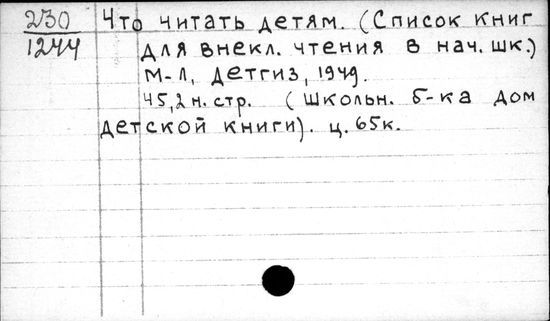 230
1244
Что читать детям. (Список книг
для внекл. чтения в нач. шк.)
М-Л, Детгиз, 1949.
45,2 н. стр. (Школьн. б-ка дом
детской книги). ц. 65к.